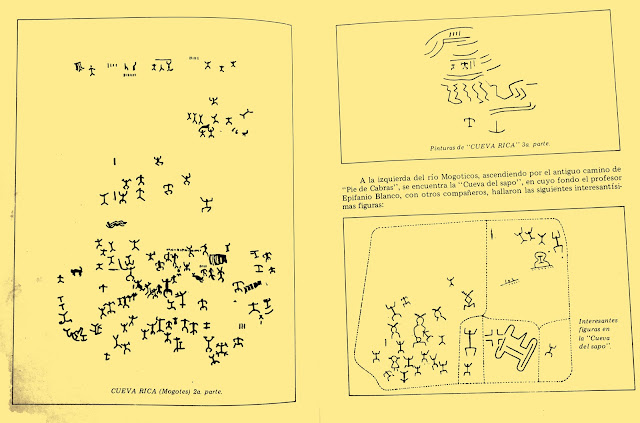 CUEVA RICA (Mogotes) 2a parte.
Pinturas de "CUEVA RICA" 3a parte.
A la izquierda del río Mogoticos, ascendiendo por el antiguo camino de
"Pie de Cabras", se encuentra la "Cueva del sapo", en cuyo fondo el profesor
Epifanio Blanco, con otros compañeros, hallaron las siguientes interesantísi-
mas figuras:
Interesantes
figuras en
la "Cueva
del sapo".